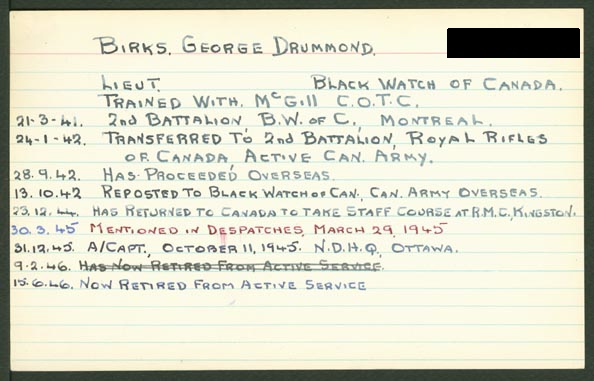 BIRKS, GEORGE DRUMMOND.
LIEUT. BLACK WATCH OF CANADA.
TRAINED WITH McGill C.O.T.C.
21-3-41. 2nd BATTALION B.W. OF C., MONTREAL.
24-1-42. TRANSFERRED TO 2nd BATTALION, ROYAL RIFLES
OF CANADA, ACTIVE CAN. ARMY.
28.9.42. HAS PROCEEDED OVERSEAS.
13.10.42 REPOSTED TO BLACK WATCH OF CAN., CAN. ARMY OVERSEAS.
23.12.44. HAS RETURNED TO CANADA TO TAKE STAFF COURSE AT R.M.C., KINGSTON.
30.3.45 MENTIONED IN DESPATCHES, MARCH 29, 1945
31.12.45. A/CAPT., OCTOBER 11, 1945. N.D.H.Q., OTTAWA.
9.2.46. HAS NOW RETIRED FROM ACTIVE SERVICE.
15.6.46. NOW RETIRED FROM ACTIVE SERVICE